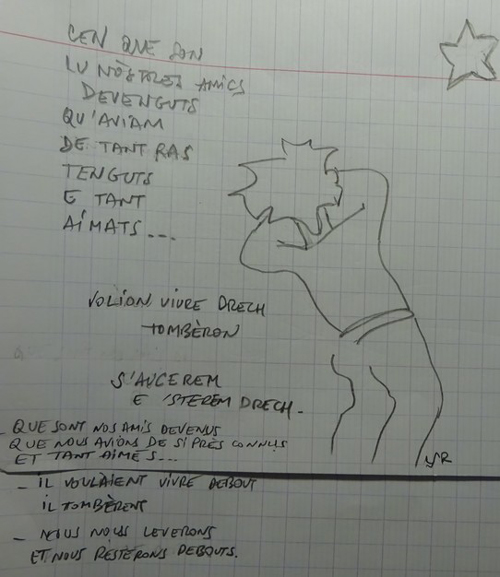 CEN QUE SON
LU NÒSTRES AMICS
DEVENGUTS
QU'AVIAM
DE TANT RAS
TENGUTS
E TANT
AIMATS...
VOLION VIVRE DRECH
TOMBÈRON
S'AUCEREM
E 'STEREM DRECH.
- QUE SONT NOS AMIS DEVENUS
QUE NOUS AVIONS DE SI PRÈS CONNUS
ET TANT AIMÉS...
- IL VOULAIENT VIVRE DEBOUT
IL TOMBÈRENT
- NOUS NOUS LEVERONS
ET NOUS RESTERONS DEBOUTS.